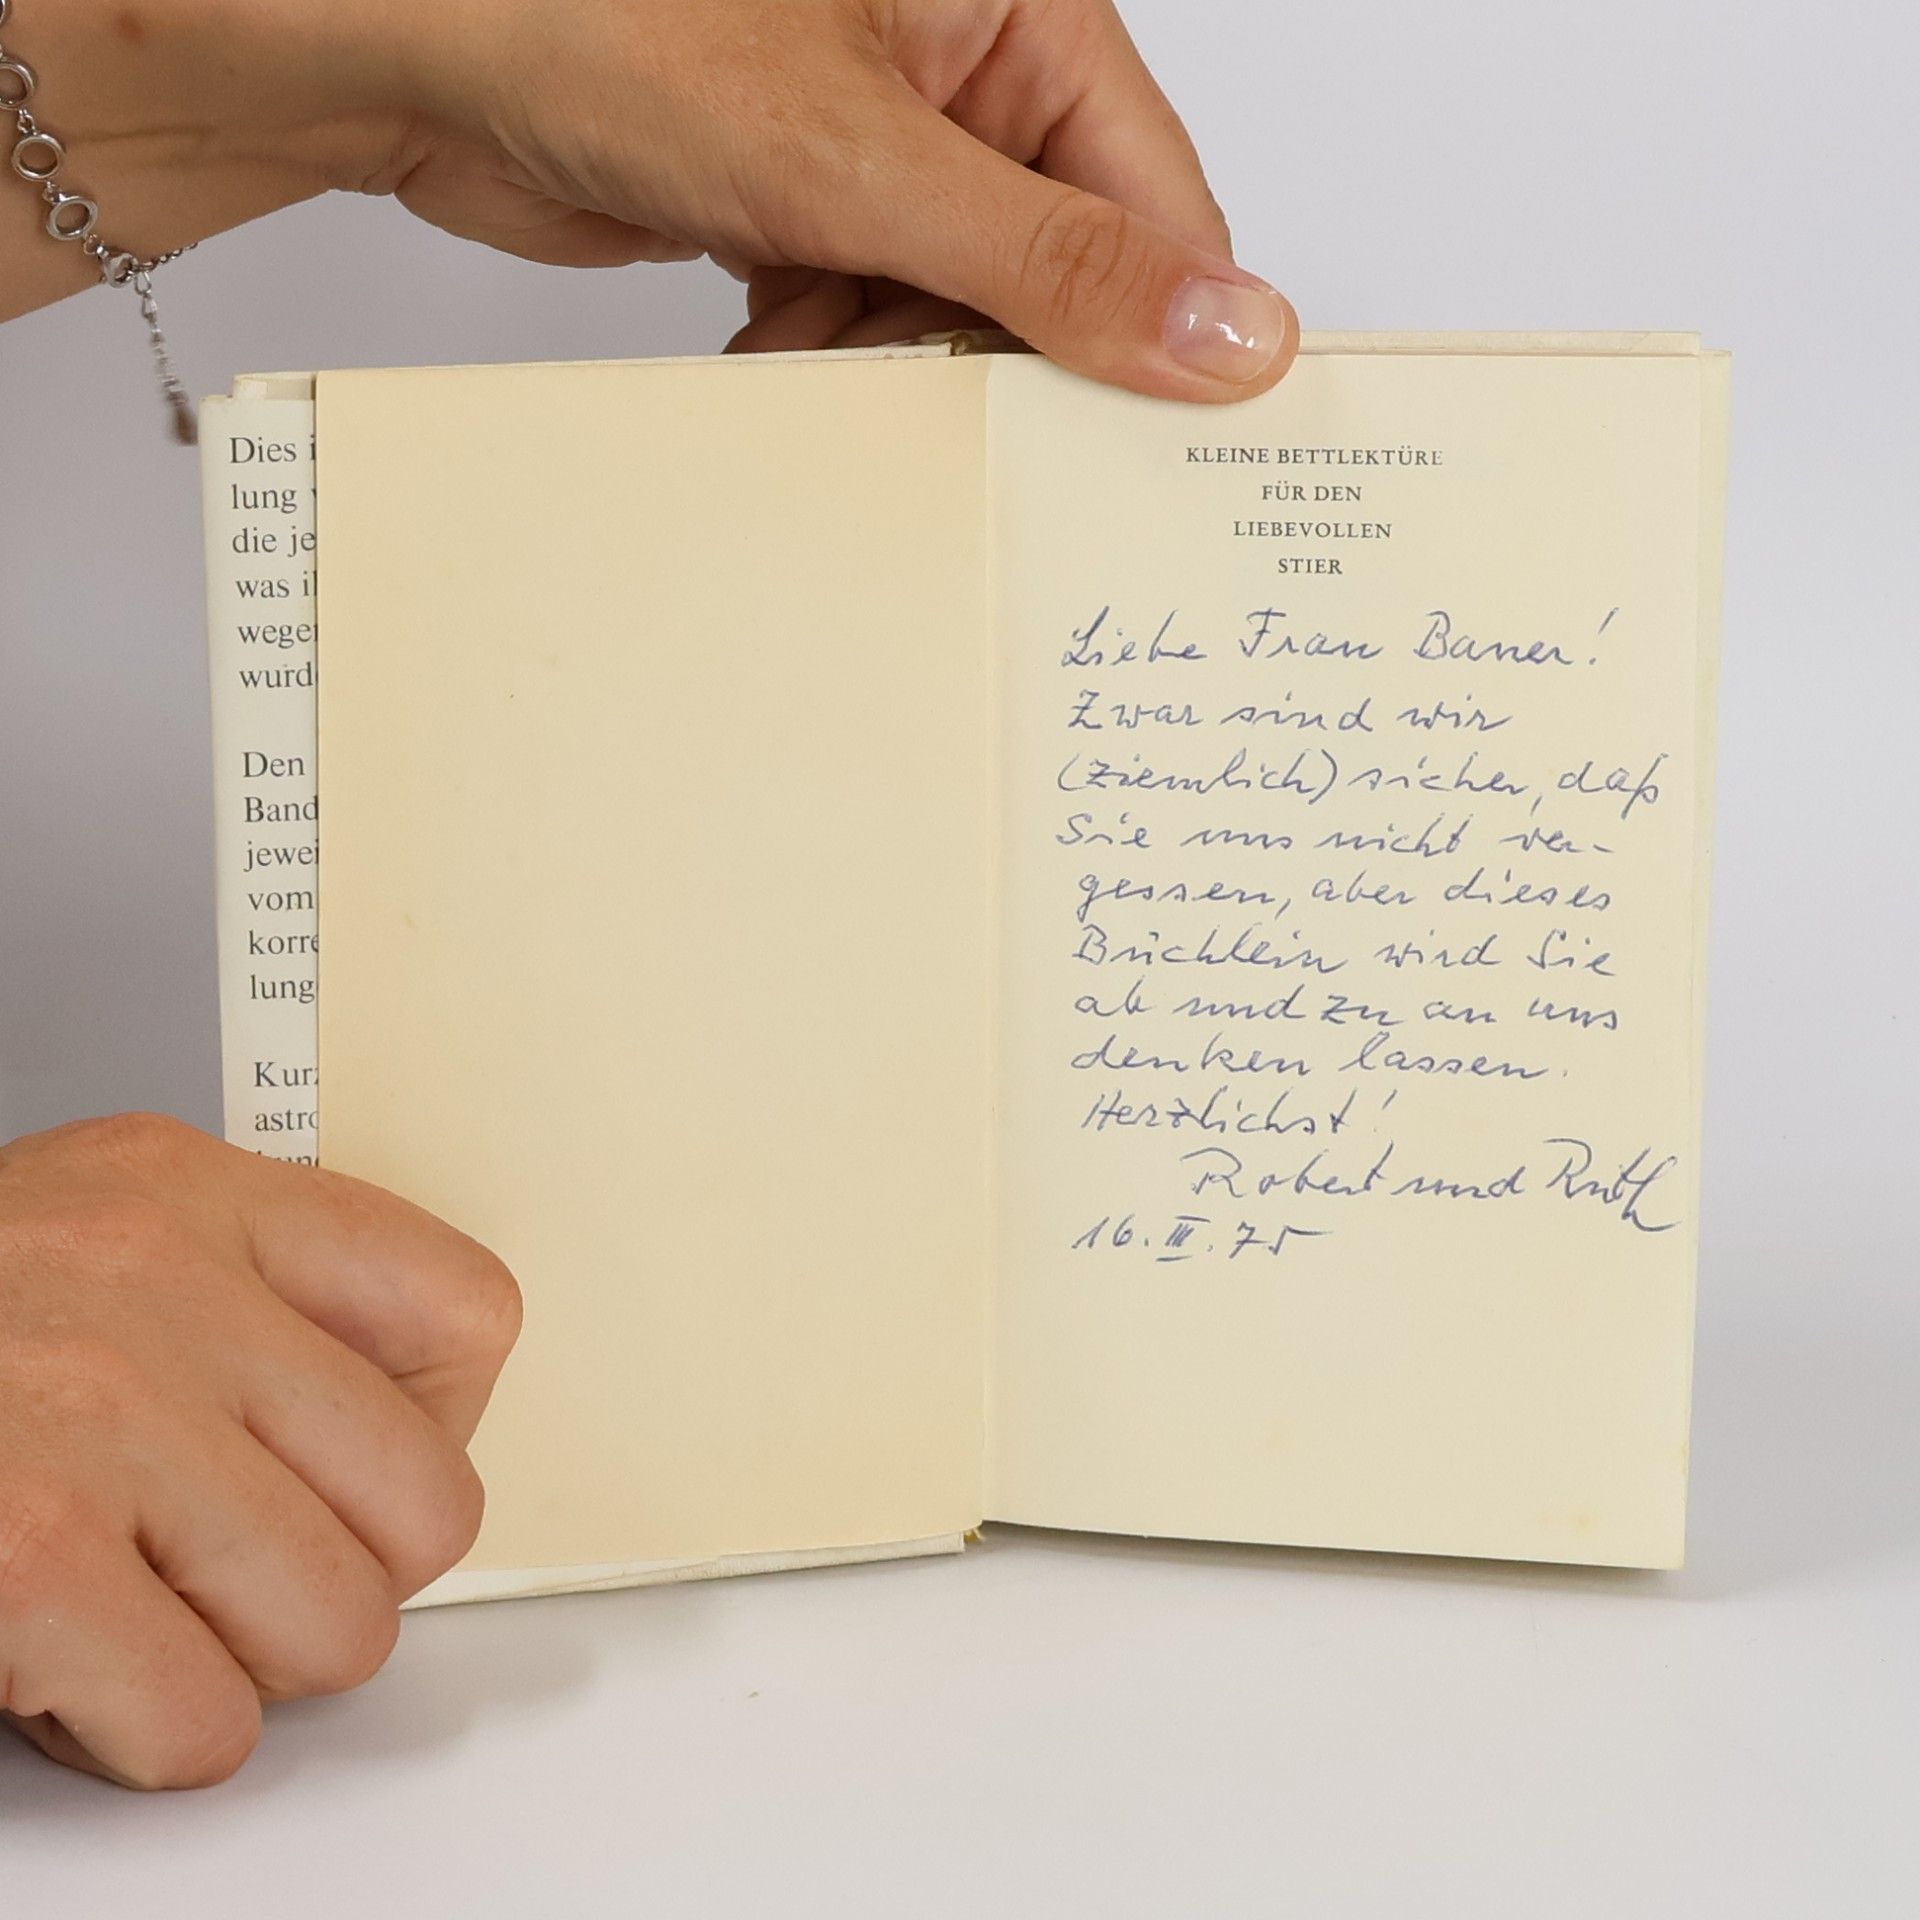 Dies i
lung
die je
was i
wege
wurd
Den
Band
jewei
vom
korre
lung
Kurz
astro
KLEINE BETTLEKTÜRE
FÜR DEN
LIEBEVOLLEN
STIER
Liebe Frau Bauer!
Zwar sind wir
(ziemlich) sicher, daß
Sie uns nicht ver-
gessen, aber dieses
Büchlein wird Sie
ab und zu an uns
denken lassen.
Herzlichst!
Robert und Ruth
16. III. 75